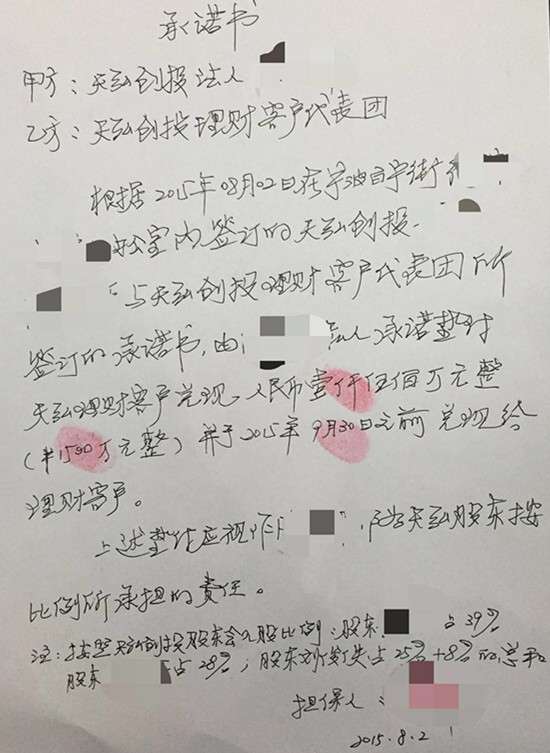 承诺书
甲方：天弘创投法人
乙方：天弘创投理财客户代表团
根据2015年08月02日在宁波百宁街
办公室内签订的天弘创投
与天弘创投理财客户代表团所
签订的承诺书，由 法人承诺垫付
天弘理财客户兑现，人民币壹仟伍佰万元整
（¥1500万元整）并于2015年9月30日之前兑现给
理财客户。
上述垫付应视作 天弘股东按
比例所承担的责任。
注：按照天弘创投股东会入股比例：股东 占39%
股东 占28%，股东刘 占25%+8%的总和
担保人：
2015.8.2